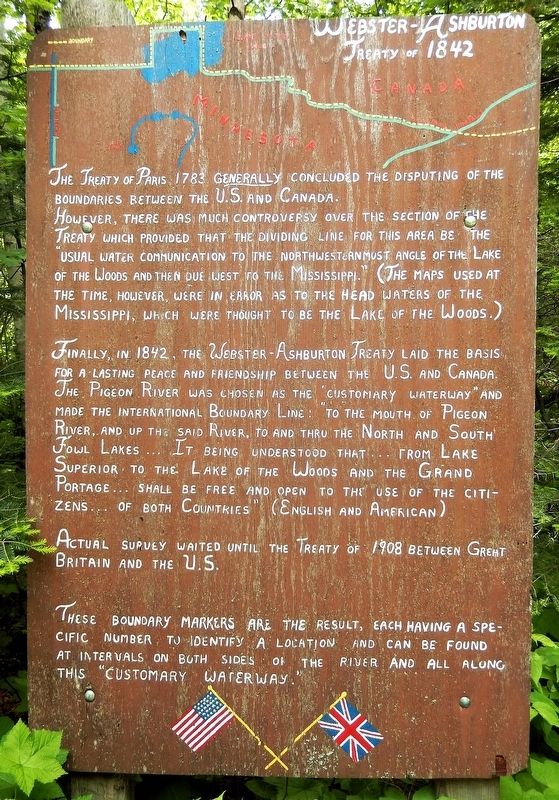 WEBSTER-ASHBURTON
TREATY OF 1842
BOUNDARY
CANADA
MINNESOTA
THE TREATY OF PARIS, 1783 GENERALLY CONCLUDED THE DISPUTING OF THE
BOUNDARIES BETWEEN THE U.S. AND CANADA.
HOWEVER, THERE WAS MUCH CONTROVERSY OVER THE SECTION OF THE
TREATY WHICH PROVIDED THAT THE DIVIDING LINE FOR THIS AREA BE "THE
USUAL WATER COMMUNICATION TO THE NORTHWESTERNMUST ANGLE OF THE LAKE
OF THE WOODS AND THEN DUE WEST TO THE MISSISSIPPI." (THE MAPS USED AT
THE TIME, HOWEVER, WERE IN ERROR AS TO THE HEAD WATERS OF THE
MISSISSIPPI, WHICH WERE THOUGHT TO BE THE LAKE OF THE WOODS.)
FINALLY, IN 1842, THE WEBSTER-ASHBURTON TREATY LAID THE BASIS
FOR A LASTING PEACE AND FRIENDSHIP BETWEEN THE U.S. AND CANADA.
THE PIGEON RIVER WAS CHOSEN AS THE "CUSTOMARY WATERWAY" AND
MADE THE INTERNATIONAL BOUNDARY LINE: "TO THE MOUTH OF PIGEON
RIVER, AND UP THE SAID RIVER, TO AND THRU THE NORTH AND SOUTH
FOWL LAKES ... IT BEING UNDERSTOOD THAT ... FROM LAKE
SUPERIOR TO THE LAKE OF THE WOODS AND THE GRAND
PORTAGE... SHALL BE FREE AND OPEN TO THE USE OF THE CITI-
ZENS... OF BOTH COUNTRIES" (ENGLISH AND AMERICAN)
ACTUAL SURVEY WAITED UNTIL THE TREATY OF 1908 BETWEEN GREAT
BRITAIN AND THE U.S.
THESE BOUNDARY MARKERS ARE THE RESULT, EACH HAVING A SPE-
CIFIC NUMBER TO IDENTIFY A LOCATION AND CAN BE FOUND
AT INTERVALS ON BOTH SIDES OF THE RIVER AND ALL ALONG
THIS "CUSTOMARY WATERWAY."